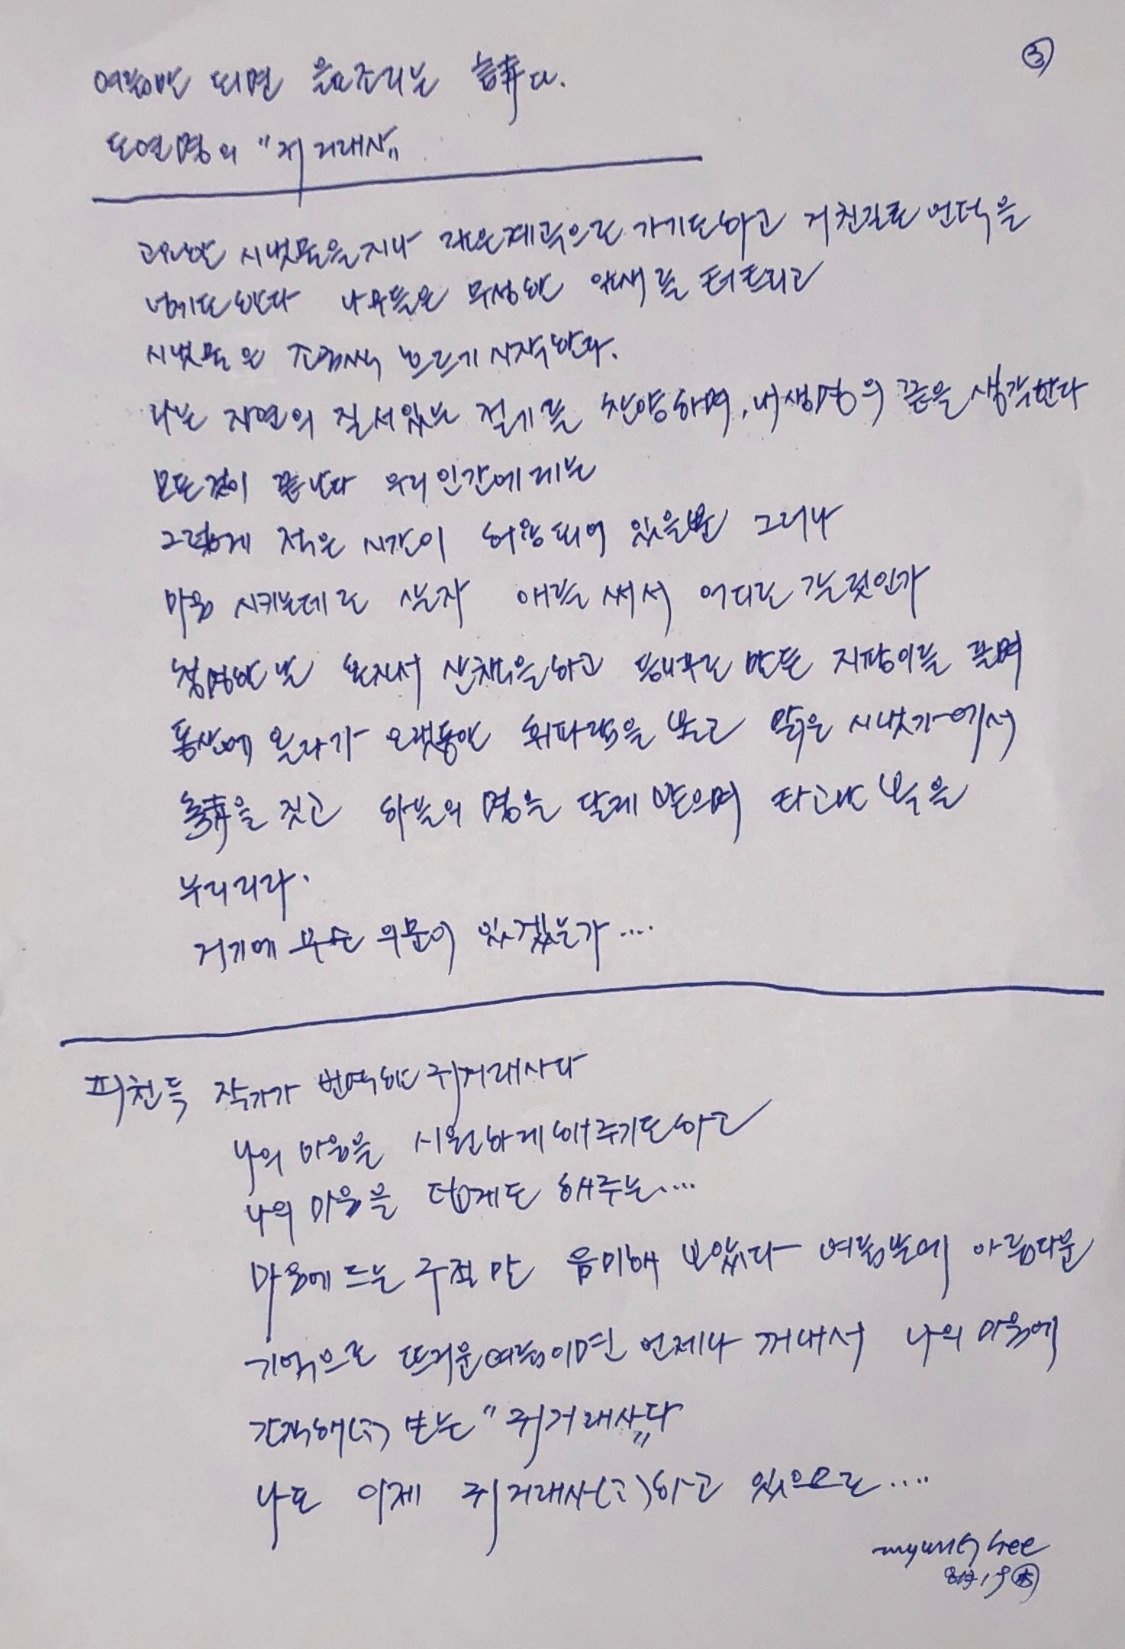 ③
여름만 되면 읊조리는 詩다.
도연명의 "귀거래사"
고요한 시냇물을 지나 깊은계곡으로 가기도하고 거친길로 언덕을
넘기도 한다 나무들은 무성한 잎새를 터트리고
시냇물은 조금씩 흐르기 시작한다.
나는 자연의 질서있는 절기를 찬양하며, 내생명의 끝을 생각한다
모든것이 끝난다 우리 인간에게는
그렇게 적은 시간이 허락되어 있을뿐 그러나
마음 시키는데로 살자 애를 써서 어디로 갈 것인가
청명한 날 혼자서 산책을하고 등나무로 만든 지팡이를 끌며
동산에 올라가 오랫동안 휘파람을 불고 맑은 시냇가에서
詩를 짓고 하늘의 명을 달게 받으며 타고난 복을
누리리라.
거기에 무슨 의문이 있겠는가....
피천득 작가가 번역한 귀거래사다
나의 마음을 시원하게 해주기도하고
나의 마음을 덥게도 해주는....
마음에 드는 구절만 음미해 보았다 여름날에 아름다운
기억으로 뜨거운여름이면 언제나 꺼내서 나의 마음에
간직해(?) 보는 "귀거래사"다
나도 이제 귀거래사(?)하고 있으므로....
myung hee